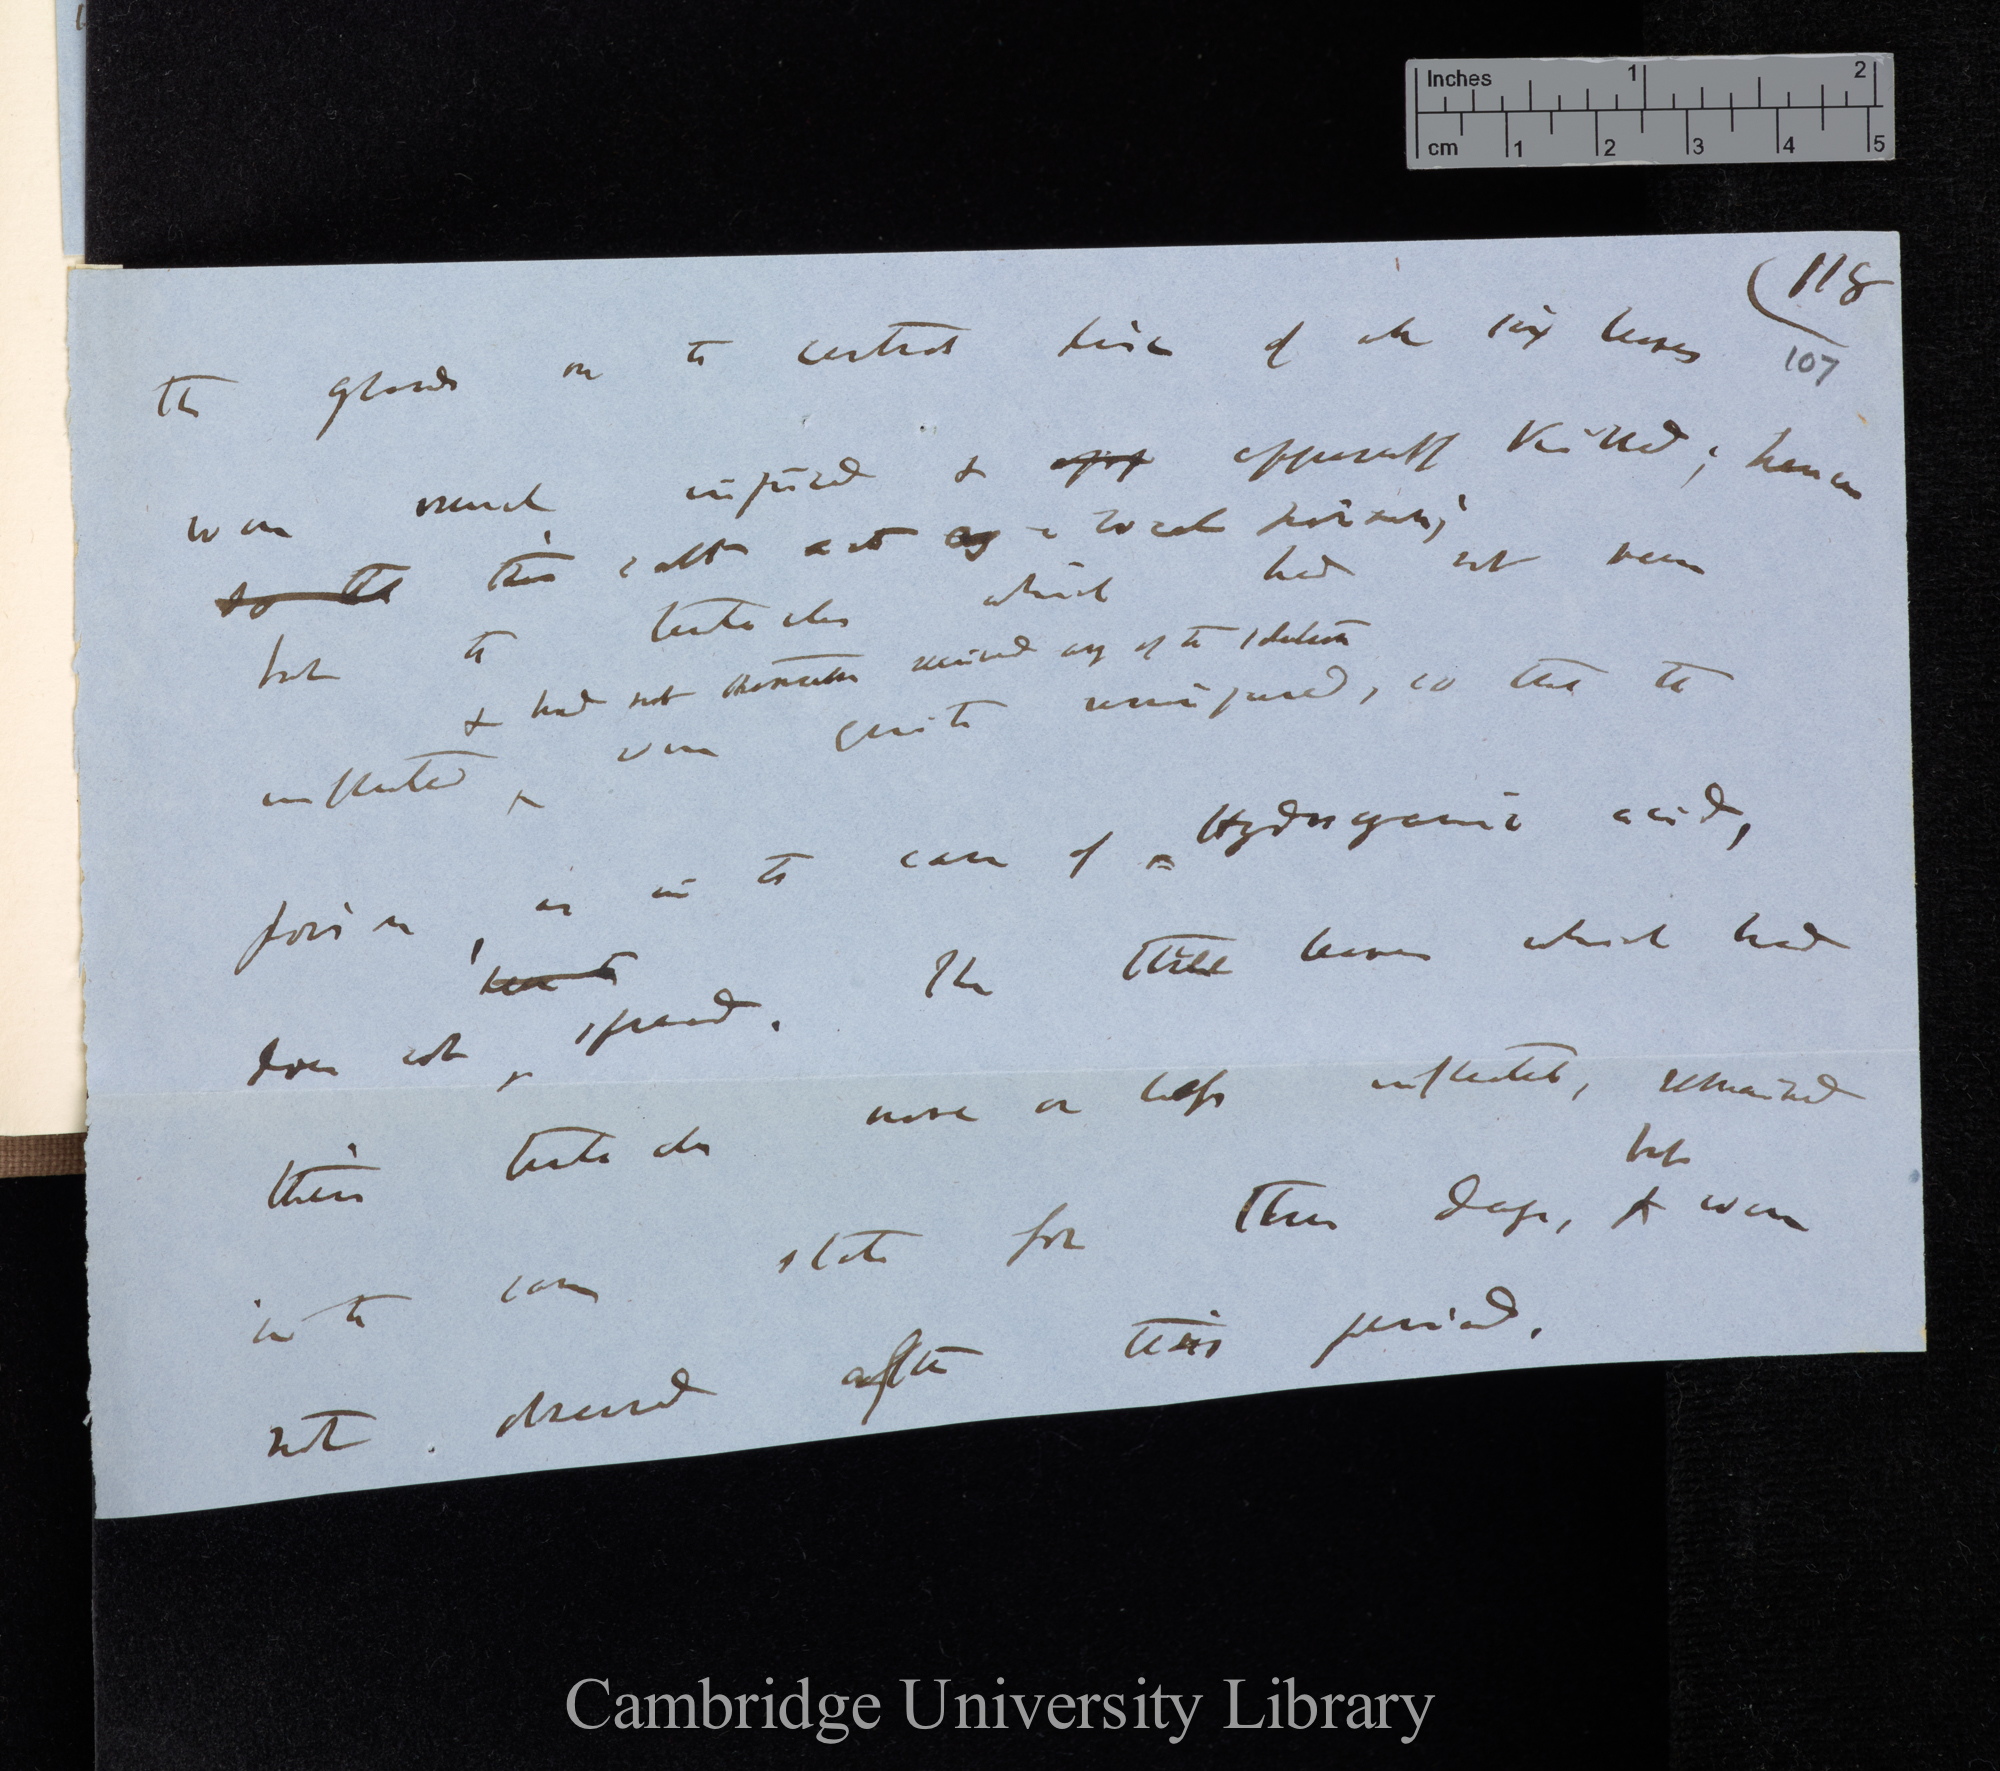 Inches 1 2
cm 1 2 3 4 5
(118
107
The glands on the central disc of all six leaves
were much injured & apparently killed; hence
so that this salt acts as a local poison;
but the tentacles which had not been
& had not themselves received any of the solution
inflected ^ were quite uninjured, so that the
poison, as in the case of ^ Hydrocyanic acid,
does not ^ spread. The three leaves which had
their tentacles more or less inflected, remained
but
in the same state for three days, & were
not observed after this period.
Cambridge University Library